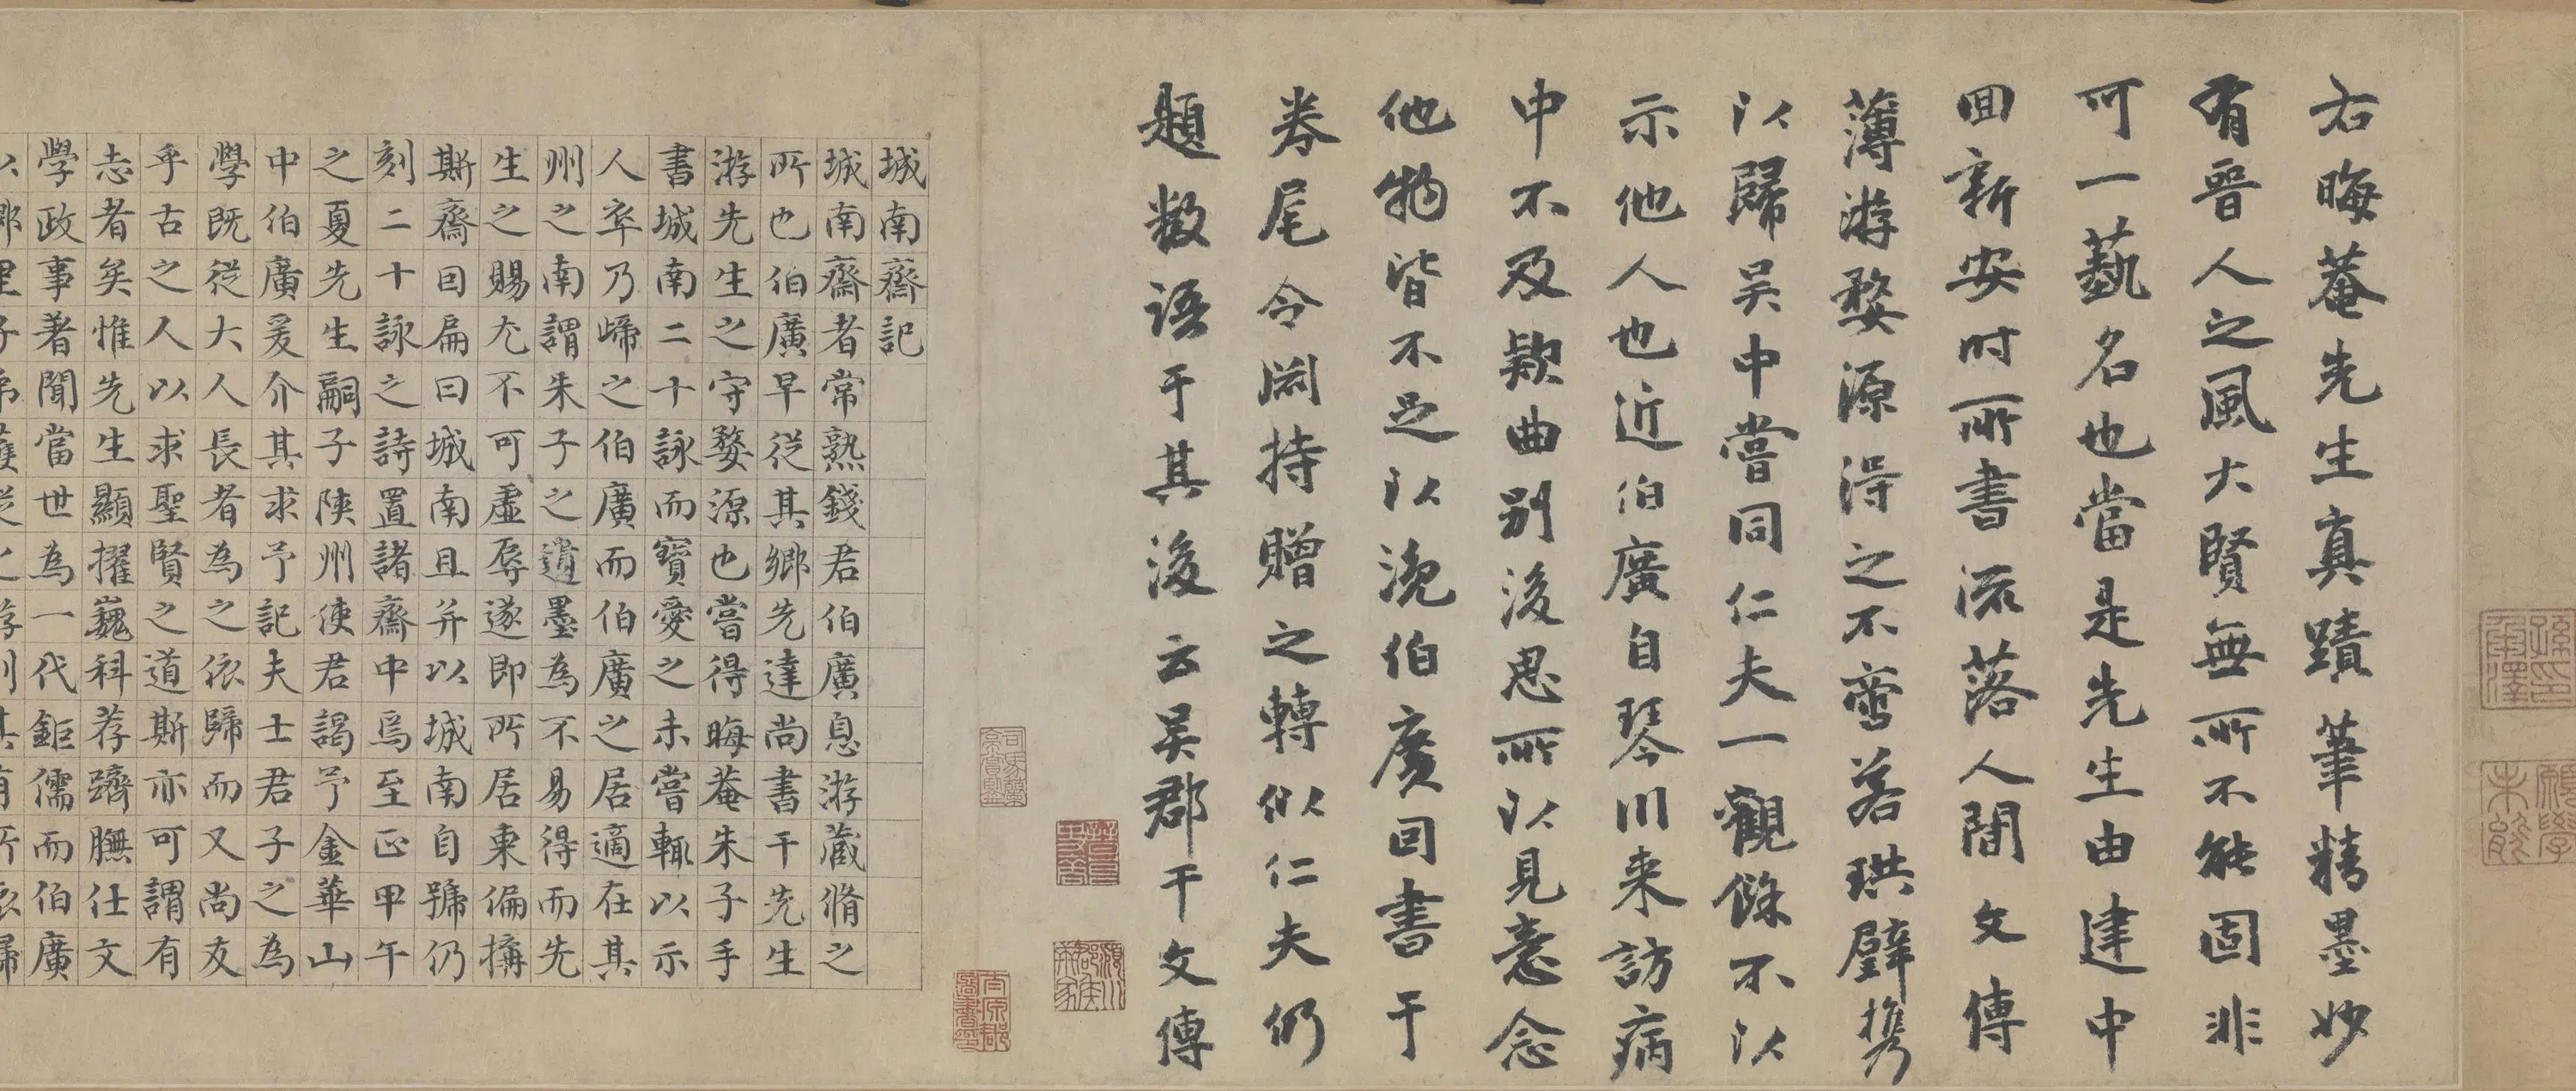 右晦菴先生真蹟筆精墨妙
有晉人之風大賢無所不能固非
可一藝名也當是先生由建中
回新安时所書流落人間文傳
薄游婺源得之不啻若珙璧携
以歸吴中嘗同仁夫一觀餘不以
示他人也近伯廣自琴川来訪病
中不及欵曲别後思所以見意念
他物皆不足以浼伯廣回書于
券尾令闲持贈之轉似仁夫仍
題数语于其後云吴郡干文傳
城南齋記
城南齋者常熟錢君伯廣息游藏脩之
所也伯廣早従其鄉先達尚書干先生
游先生之守婺源也嘗得晦菴朱子手
書城南二十詠而寳愛之未嘗輒以示
人卒乃歸之伯廣而伯廣之居適在其
州之南謂朱子之遺墨為不易得而先
生之賜尤不可虛辱遂即所居東偏搆
斯齋因扁曰城南且并以城南自號仍
刻二十詠之詩置諸齋中焉至正甲午
之夏先生嗣子陝州使君謁予金華山
中伯廣爰介其求予記夫士君子之為
學既従大人長者為之依歸而又尚友
乎古之人以求聖賢之道斯亦可謂有
志者矣惟先生顯擢巍科荐躋膴仕文
學政事著聞當世為一代鉅儒而伯廣